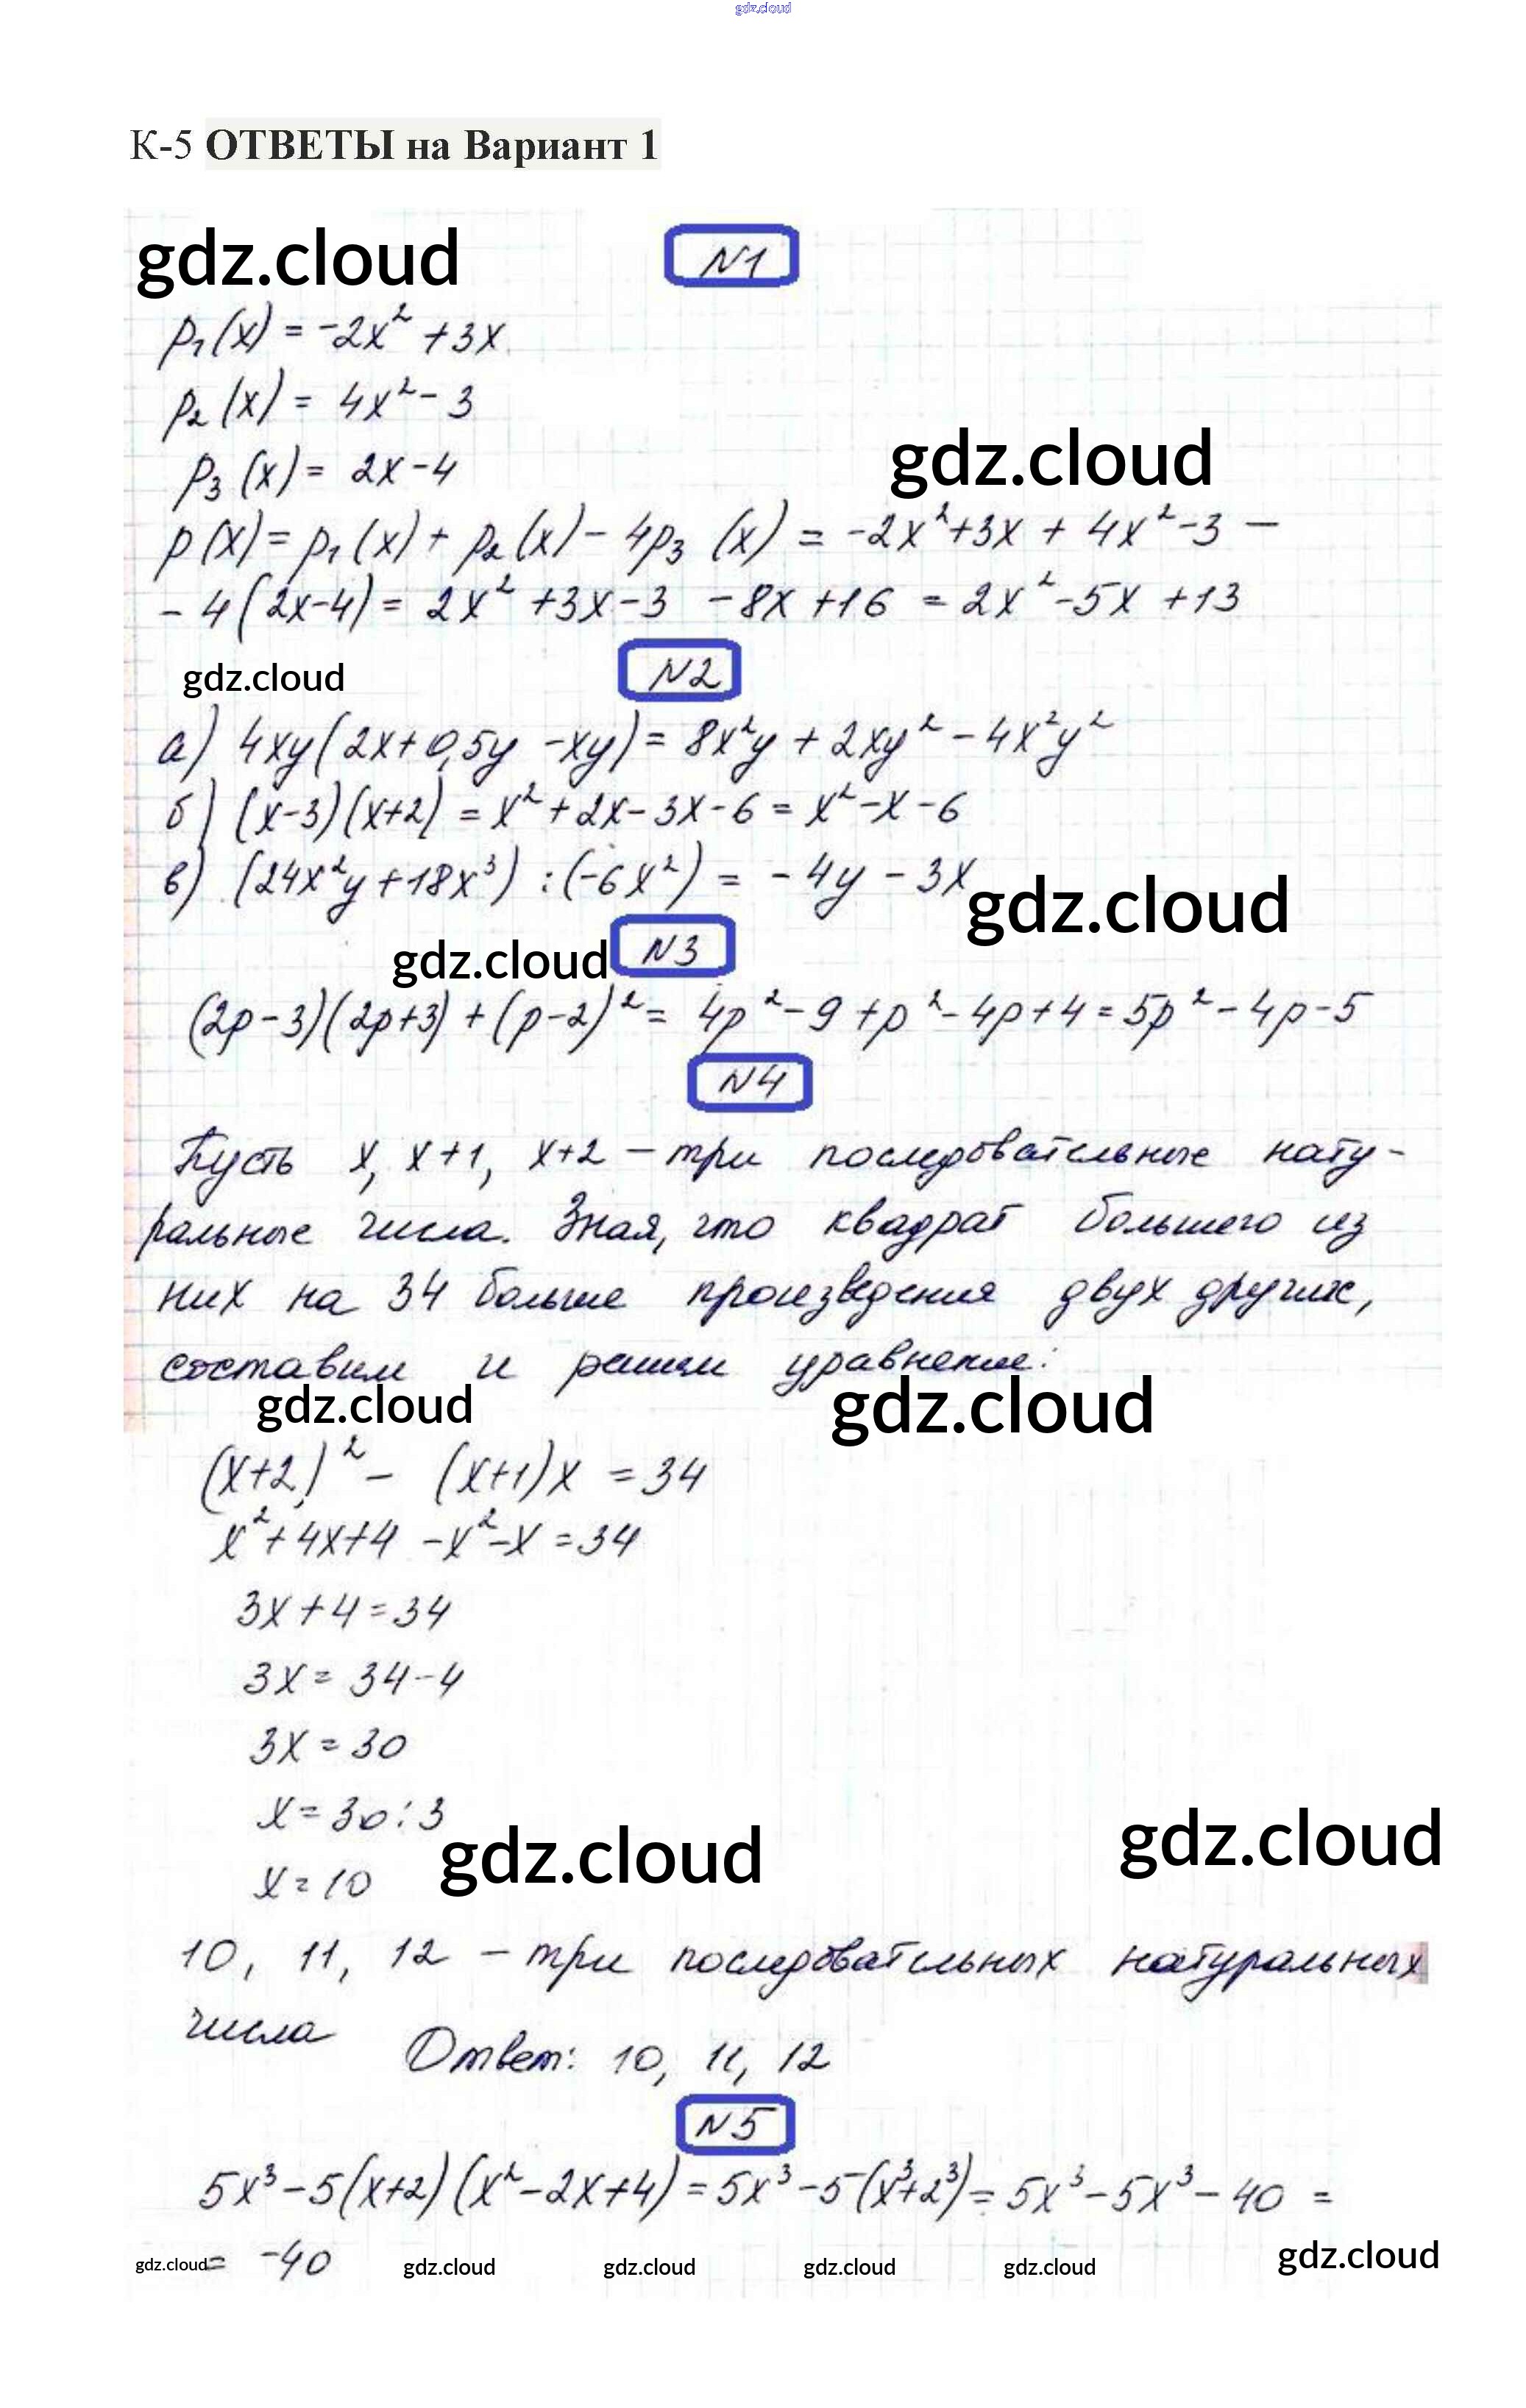 gdz.cloud
К-5 ОТВЕТЫ на Вариант 1
gdz.cloud
N1
p₁(x) = -2x² + 3x
p₂(x) = 4x² - 3
p₃(x) = 2x - 4
gdz.cloud
p(x) = p₁(x) + p₂(x) - 4p₃(x) = -2x² + 3x + 4x² - 3 -
- 4(2x-4) = 2x² + 3x - 3 - 8x + 16 = 2x² - 5x + 13
gdz.cloud
N2
а) 4xy(2x + 0,5y - xy) = 8x²y + 2xy² - 4x²y²
б) (x-3)(x+2) = x² + 2x - 3x - 6 = x² - x - 6
в) (24x²y + 18x³) : (-6x²) = -4y - 3x
gdz.cloud
gdz.cloud
N3
(2p-3)(2p+3) + (p-2)² = 4p² - 9 + p² - 4p + 4 = 5p² - 4p - 5
N4
Пусть x, x+1, x+2 - три последовательные нату-
ральные числа. Зная, что квадрат большего из
них на 34 больше произведения двух других,
составим и решим уравнение:
gdz.cloud
gdz.cloud
(x+2)² - (x+1)x = 34
x² + 4x + 4 - x² - x = 34
3x + 4 = 34
3x = 34 - 4
3x = 30
x = 30 : 3
gdz.cloud
gdz.cloud
x = 10
10, 11, 12 - три последовательных натуральных
числа Ответ: 10, 11, 12
N5
5x³ - 5(x+2)(x² - 2x + 4) = 5x³ - 5(x³ + 2³) = 5x³ - 5x³ - 40 =
= -40
gdz.cloud gdz.cloud gdz.cloud gdz.cloud gdz.cloud gdz.cloud